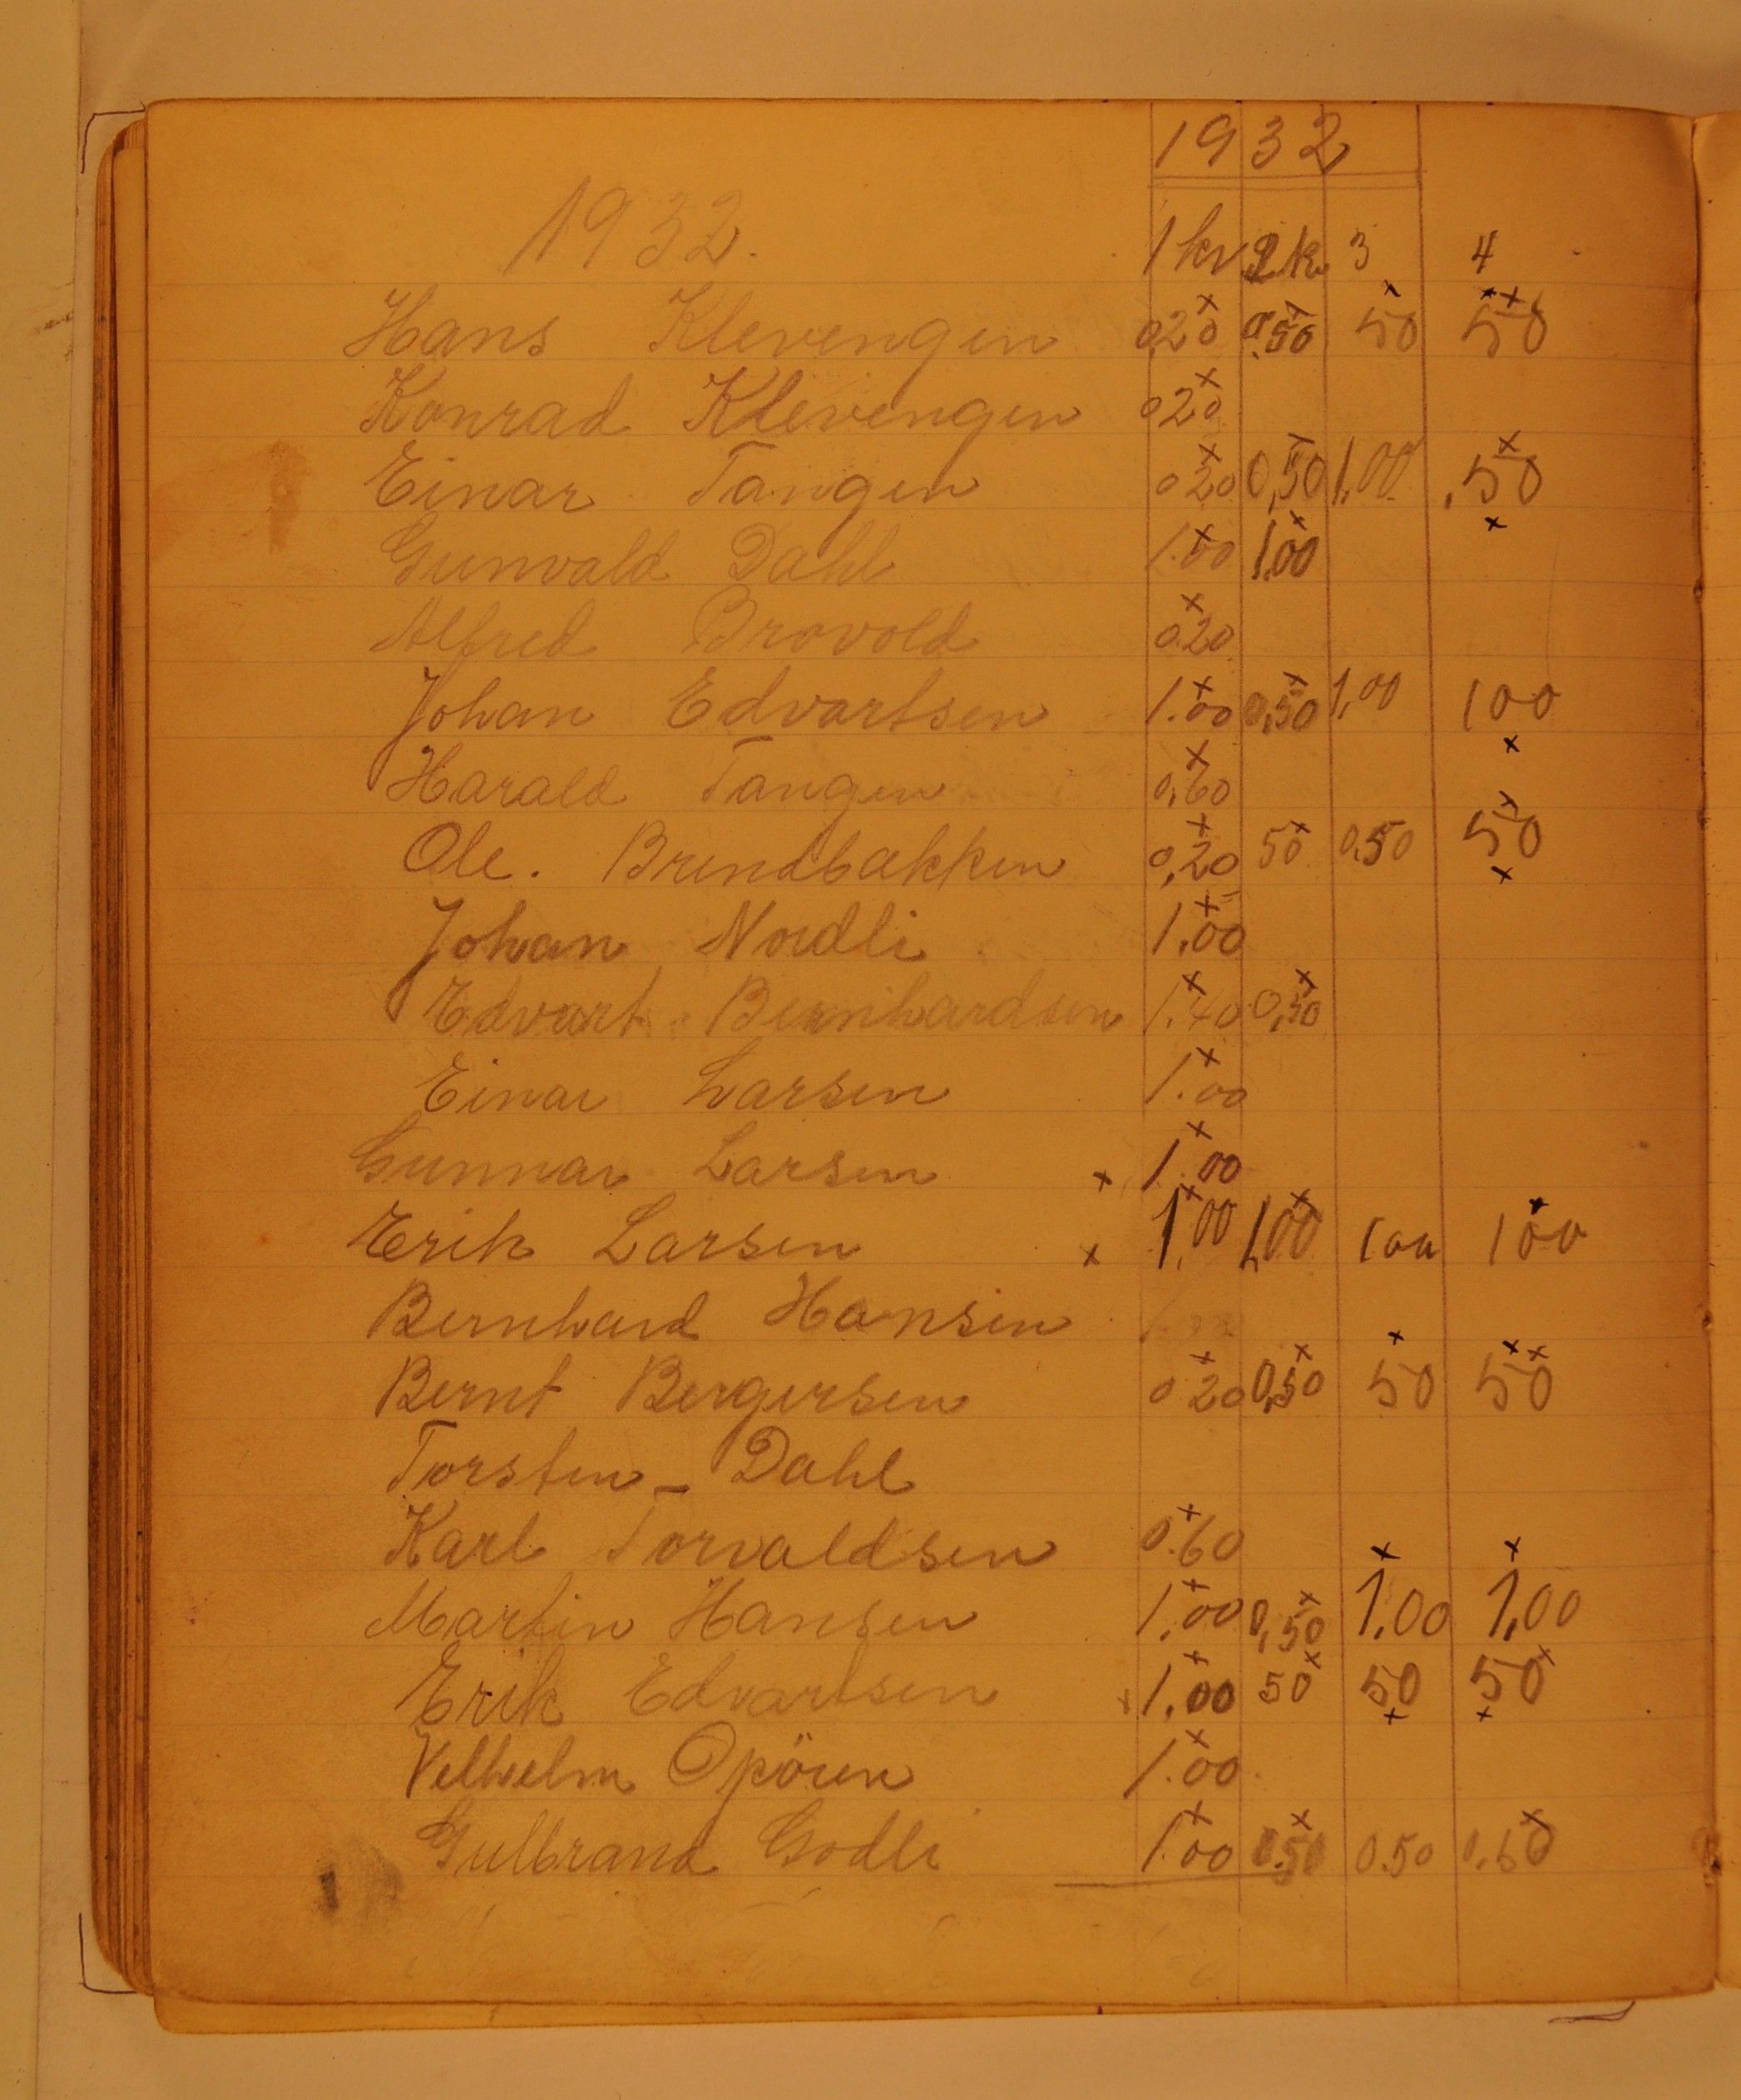 1932
1932. 1 kv 2 k. 3 4
Hans Klevengen 0,20 0,50 50 50
Konrad Klevengen 020
Einar Tangen 020 0,50 1.00 .50
Gunvald Dahl 1.00 1.00
Alfred Brovold 0.20
Johan Edvartsen 1.00 0,50 1,00 100
Harald Tangen 0,60
Ole. Brendbakken 0,20 50 0.50 50
Johan Nordli 1.00
Edvart Bernhardsen 1.40 0,50
Einar Larsen 1.00
Gunnar Larsen x 1.00
Erik Larsen x 1.00 1,00 100 100
Bernhard Hansen
Bernt Bergersen 0 20 0,50 50 50
Torsten - Dahl
Karl Torvaldsen 0.60
Martin Hansen 1,00 0,50 1,00 1,00
Erik Edvartsen x 1.00 50 50 50
Velhelm Opören 1.00
Gulbrand Godli 1.00 0.50 0.50 0.50